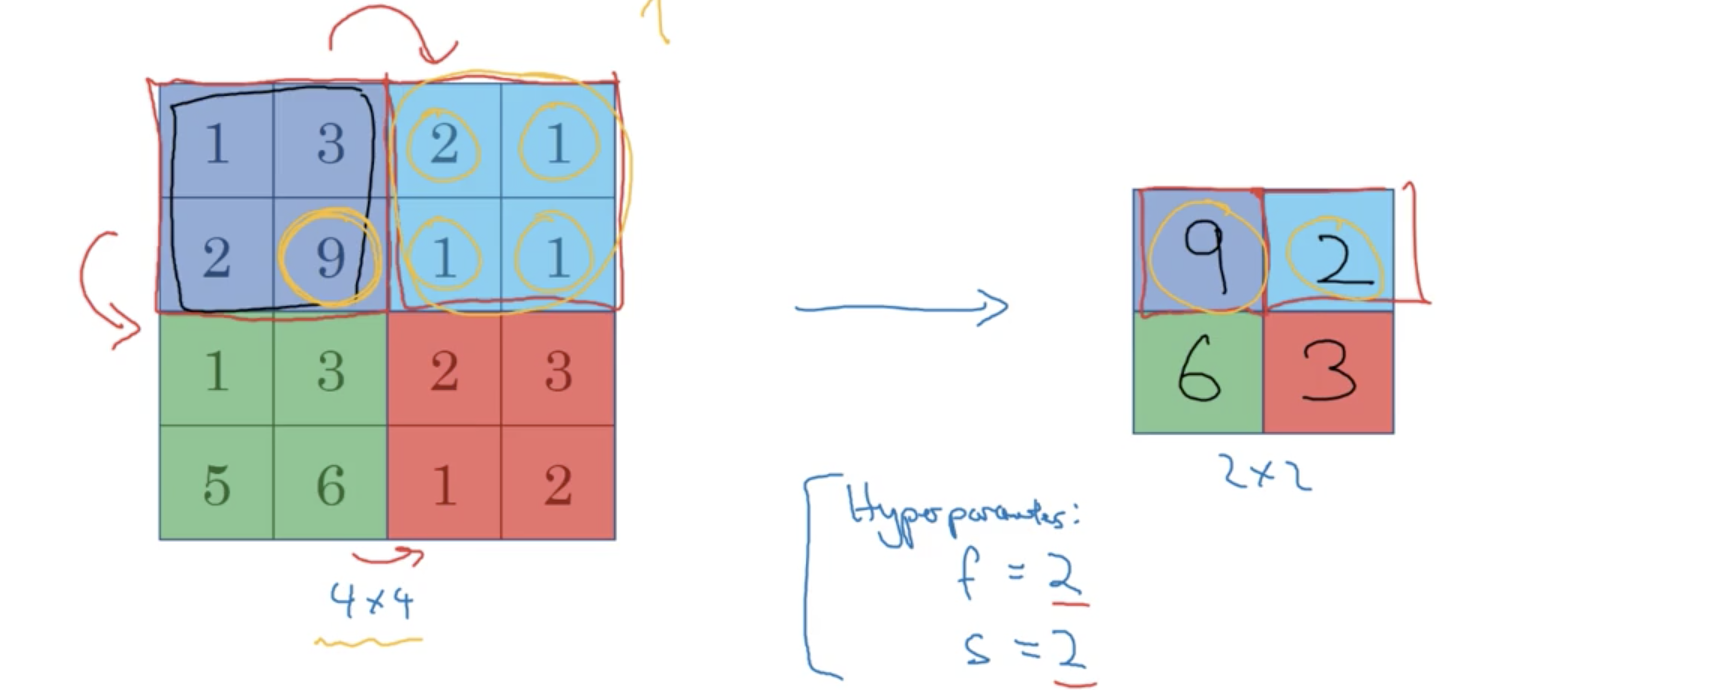 1 3 2 1
2 9 1 1
1 3 2 3
5 6 1 2
4x4
9 2
6 3
2x2
Hyperparameters:
f = 2
s = 2